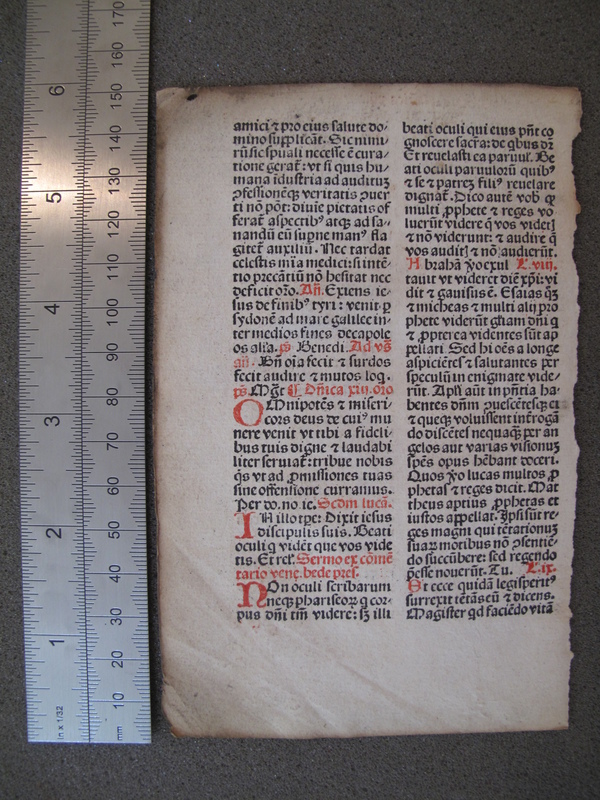 amici ⁊ pro eius salute do⸗
mino supplicāt. Sic nimi
rū sic sp̄uali necesse ē cura⸗
tione gerat̄: vt si quis hu⸗
mana īdustria ad auditum
ꝓfessionēq veritatis ꝯuer
ti nō pōt: diuīe pietatis of
ferat̄ aspectibꝰ atqꝫ ad sa⸗
nandū eū supne manꝰ fla
gitet̄ auxiliū. Nec tardat
celestis mīa medici: si inten⸗
tio precātiū nō hesitat nec
deficit oro. Añ. Exiens ie⸗
sus de finibꝰ tyri: venit ꝑ
sydonē ad mare galilee in⸗
ter medios fines decapole
os alīa. ps Benedi. Ad vs̄
añ. Bn̄ oīa fecit ⁊ surdos
fecit audire ⁊ mutos loq.
ps. Mg̅t ¶ Dn̄ica xiij. oro
OMnipotēs ⁊ miseri⸗
cors deus de cuiꝰ mu
nere venit vt tibi a fideli⸗
bus tuis digne ⁊ laudabi
liter seruiat̄: tribue nobis
q̄s vt ad ꝓmissiones tuas
sine offensione curramus.
Per do. no. ie. Scdm lucā.
IN illo tp̄e: Dixit iesus
discipulis suis. Beati
oculi q vidēt que vos vide
tis. Et rel̄. Sermo ex cōmē
tario vene. bede pres.
NOn oculi scribarum
neqꝫ phariseoꝝ q cor⸗
pus dn̄i tm̄ videre: sꝫ illi
beati oculi qui eius pn̄t co
gnoscere sacra: de qbus dr̄
Et reuelasti ea paruul. Be
ati oculi paruuloꝝ quibꝰ
⁊ se ⁊ patreꝫ filiꝰ reuelare
dignat̄. Dico autē vob̄ q
multi ꝓphete ⁊ reges vo
luerūt videre q vos videt
⁊ nō viderunt: ⁊ audire q
vos audit ⁊ nō audierūt.
Abrahā ꝟo exul L. viij.
tauit vt videret diē xp̄i: vi
dit ⁊ gauisus ē. Esaias qꝫ
⁊ micheas ⁊ multi alij pro
phete viderūt gl̄iam dn̄i q
⁊ ꝓpterea videntes sūt ap
pellati. Sed hi oēs a longe
aspiciētes ⁊ salutantes per
speculū in enigmate vide⸗
rūt. Apl̄i aūt in pn̄tia ha⸗
bentes dn̄m ꝯuescētesqꝫ ei
⁊ quecqꝫ voluissent introga
do discētes nequaqꝫ per an
gelos aut varias visionuꝫ
sp̄es opus hēbant doceri.
Quos ꝟo lucas multos ꝓ
phetas ⁊ reges dicit. Mat
theus aptius ꝓphetas et
iustos appellat. Ipsi sūt re⸗
ges magni qui tētationuꝫ
suaꝝ motibus nō ꝯsentiē⸗
do succūbere: sed regendo
p̄esse nouerūt. Tu. L. ix.
Et ecce quidā legisperitꝰ
surrexit tētās eū ⁊ dicens.
Magister qd faciēdo vitā
In x 1/32
1
2
3
4
5
6
mm
10
20
30
40
50
60
70
80
90
100
110
120
130
140
150
160
170